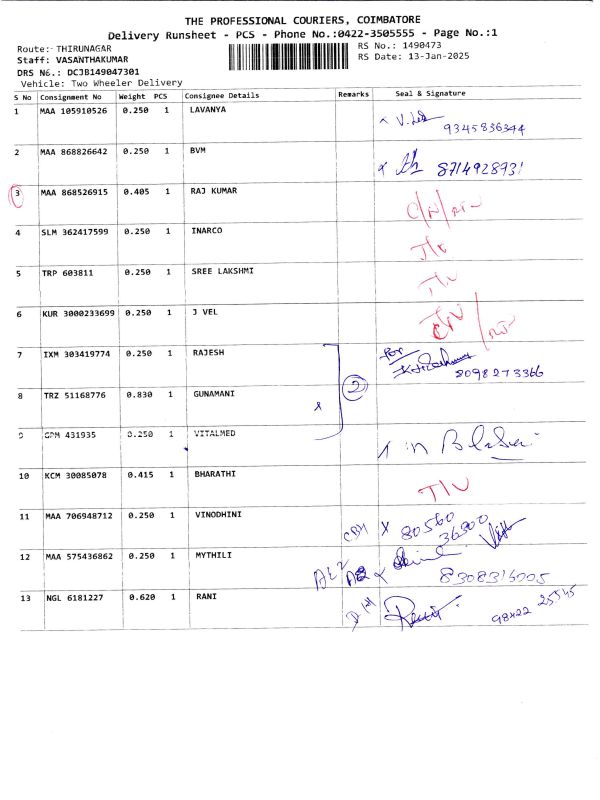 THE PROFESSIONAL COURIERS, COIMBATORE
Delivery Runsheet - PCS - Phone No.:0422-3505555 - Page No.:1
Route:- THIRUNAGAR
RS No.: 1490473
Staff: VASANTHAKUMAR
RS Date: 13-Jan-2025
DRS No.: DCJB149047301
Vehicle: Two Wheeler Delivery
S No Consignment No Weight PCS Consignee Details Remarks Seal & Signature
1 MAA 105910526 0.250 1 LAVANYA
9345836344
2 MAA 868826642 0.250 1 BVM 8714928931
3 MAA 868526915 0.405 1 RAJ KUMAR
4 SLM 362417599 0.250 1 INARCO
5 TRP 603811 0.250 1 SREE LAKSHMI
6 KUR 3000233699 0.250 1 J VEL
7 IXM 303419774 0.250 1 RAJESH for
8098273366
8 TRZ 51168776 0.830 1 GUNAMANI x 2
9 GPM 431935 0.250 1 VITALMED
10 KCM 30085078 0.415 1 BHARATHI
11 MAA 706948712 0.250 1 VINODHINI x 80560
36300
12 MAA 575436862 0.250 1 MYTHILI
13 NGL 6181227 0.620 1 RANI 98422 25545